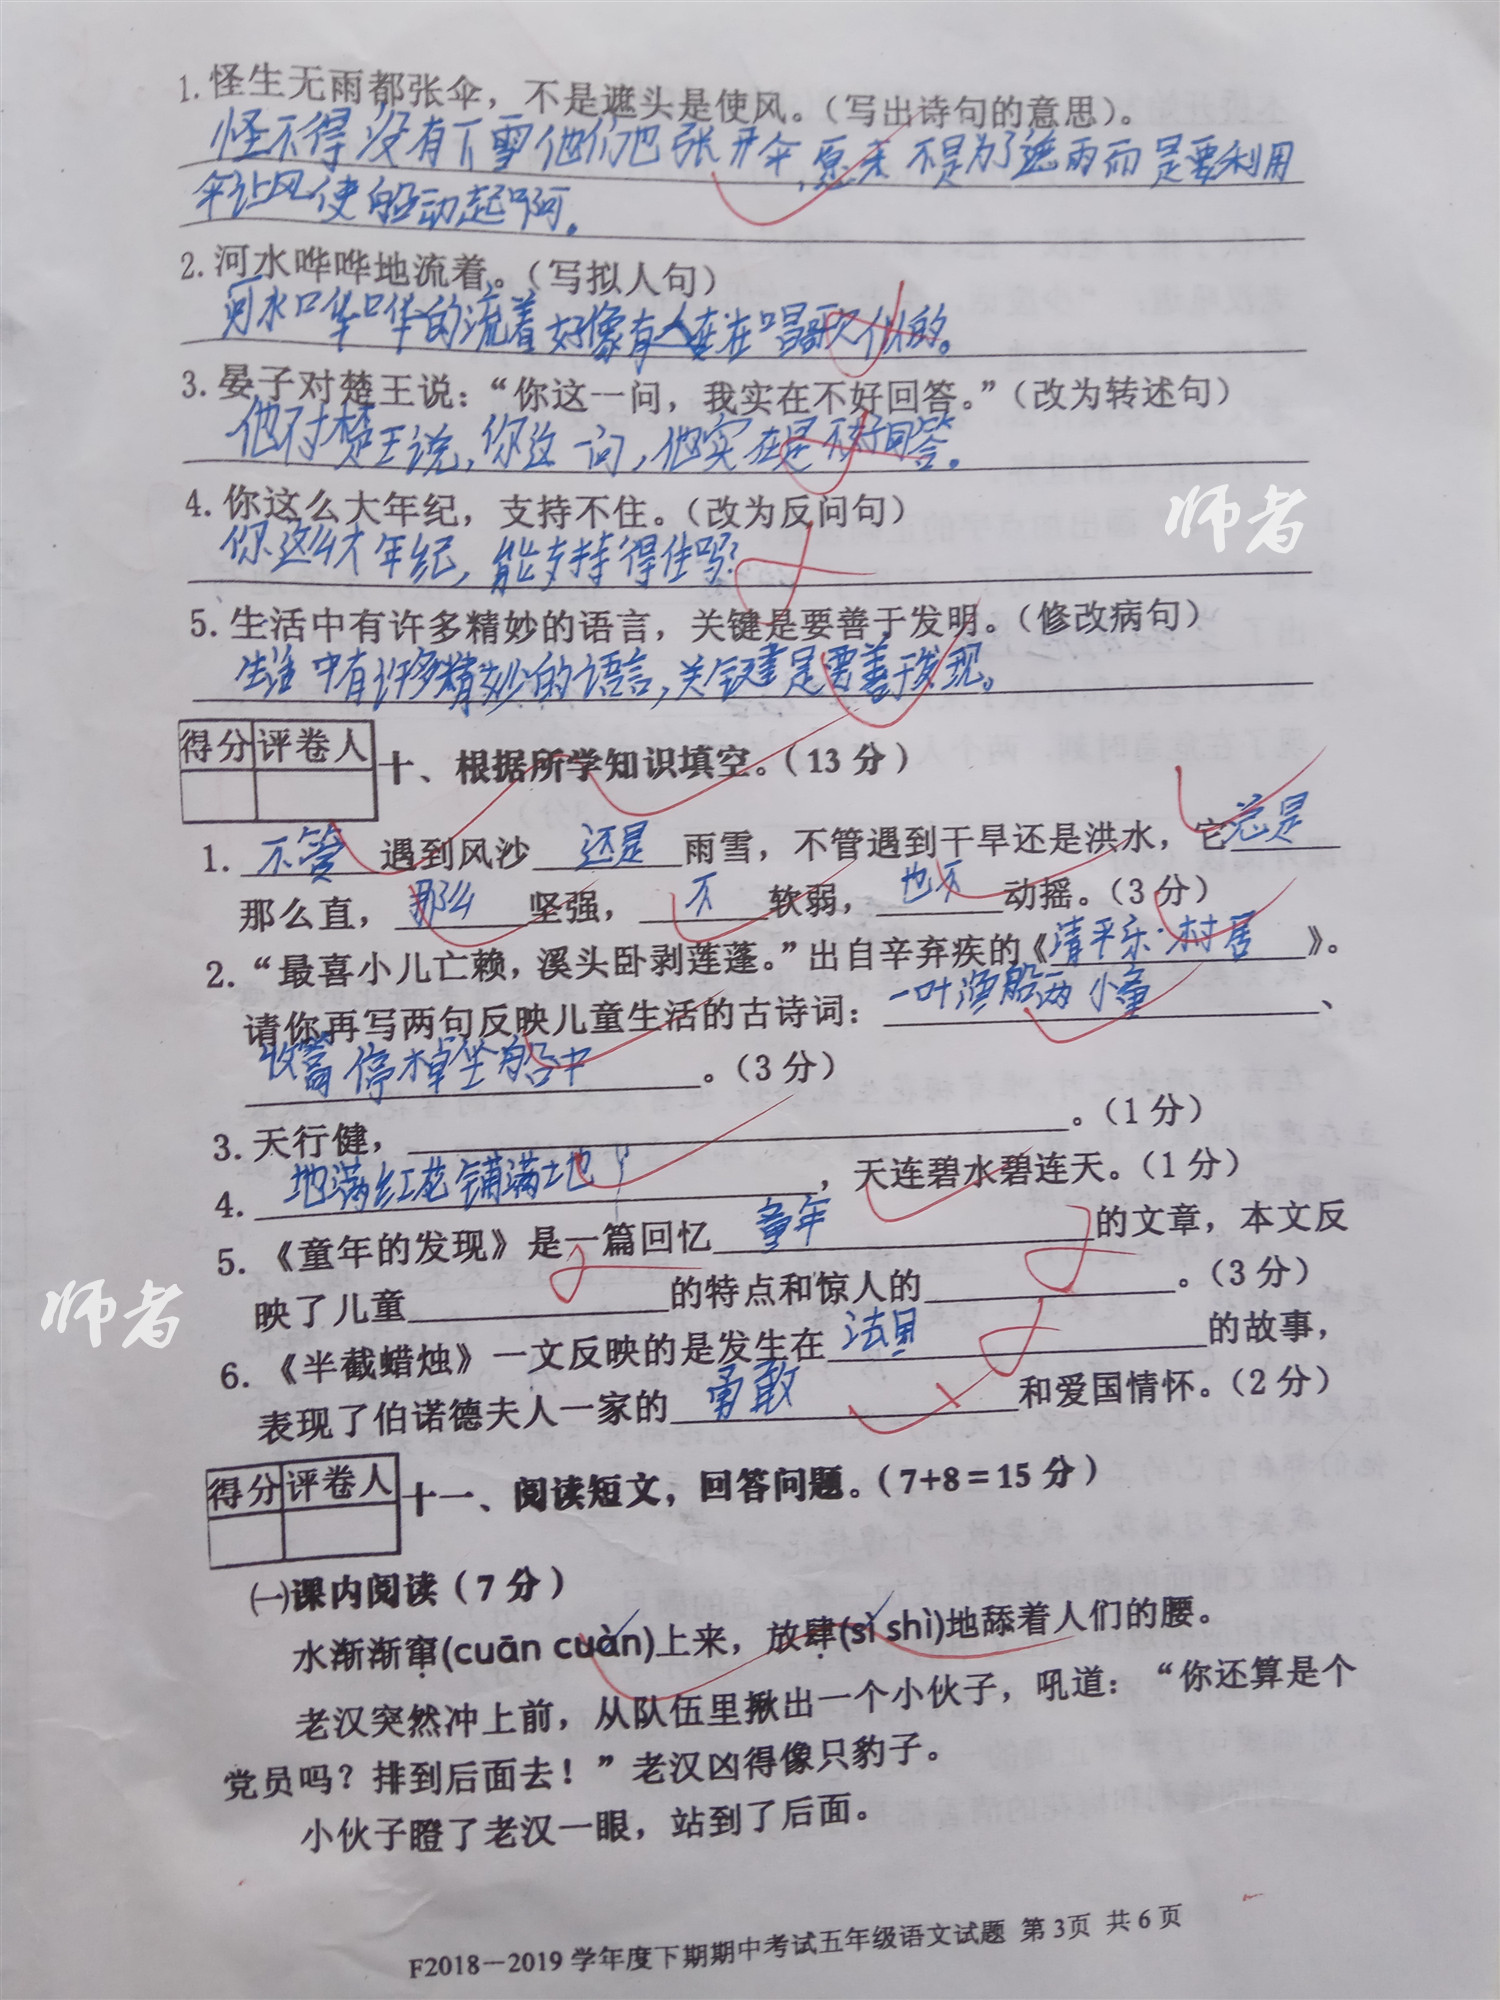 1.怪生无雨都张伞，不是遮头是使风。（写出诗句的意思）。
怪不得没有下雪他们也张开伞，原来不是为了遮雨而是要利用
伞让风使船动起啊。
2.河水哗哗地流着。（写拟人句）
河水哗哗的流着好像有人在在唱歌似的。
3.晏子对楚王说：“你这一问，我实在不好回答。”（改为转述句）
他对楚王说，你这一问，他实在是不好回答。
4.你这么大年纪，支持不住。（改为反问句）
师者
你这么大年纪，能支持得住吗？
5.生活中有许多精妙的语言，关键是要善于发明。（修改病句）
生活中有许多精妙的语言，关键是要善于发现。
得分 评卷人
十、根据所学知识填空。（13分）
1.不管遇到风沙还是雨雪，不管遇到干旱还是洪水，它总是
那么直，那么坚强，不软弱，也不动摇。（3分）
2.“最喜小儿亡赖，溪头卧剥莲蓬。”出自辛弃疾的《清平乐·村居》。
请你再写两句反映儿童生活的古诗词：一叶渔船两小童、
收篙停棹坐船中。（3分）
3.天行健，。（1分）
4.地满红花铺满地，天连碧水碧连天。（1分）
5.《童年的发现》是一篇回忆童年的文章，本文反
映了儿童的特点和惊人的。（3分）
师者
6.《半截蜡烛》一文反映的是发生在法国的故事，
表现了伯诺德夫人一家的勇敢和爱国情怀。（2分）
得分 评卷人
十一、阅读短文，回答问题。（7+8=15分）
㈠课内阅读（7分）
水渐渐窜(cuān cuàn)上来，放肆(sì shì)地舔着人们的腰。
老汉突然冲上前，从队伍里揪出一个小伙子，吼道：“你还算是个
党员吗？排到后面去！”老汉凶得像只豹子。
小伙子瞪了老汉一眼，站到了后面。
F2018－2019学年度下期期中考试五年级语文试题 第3页 共6页